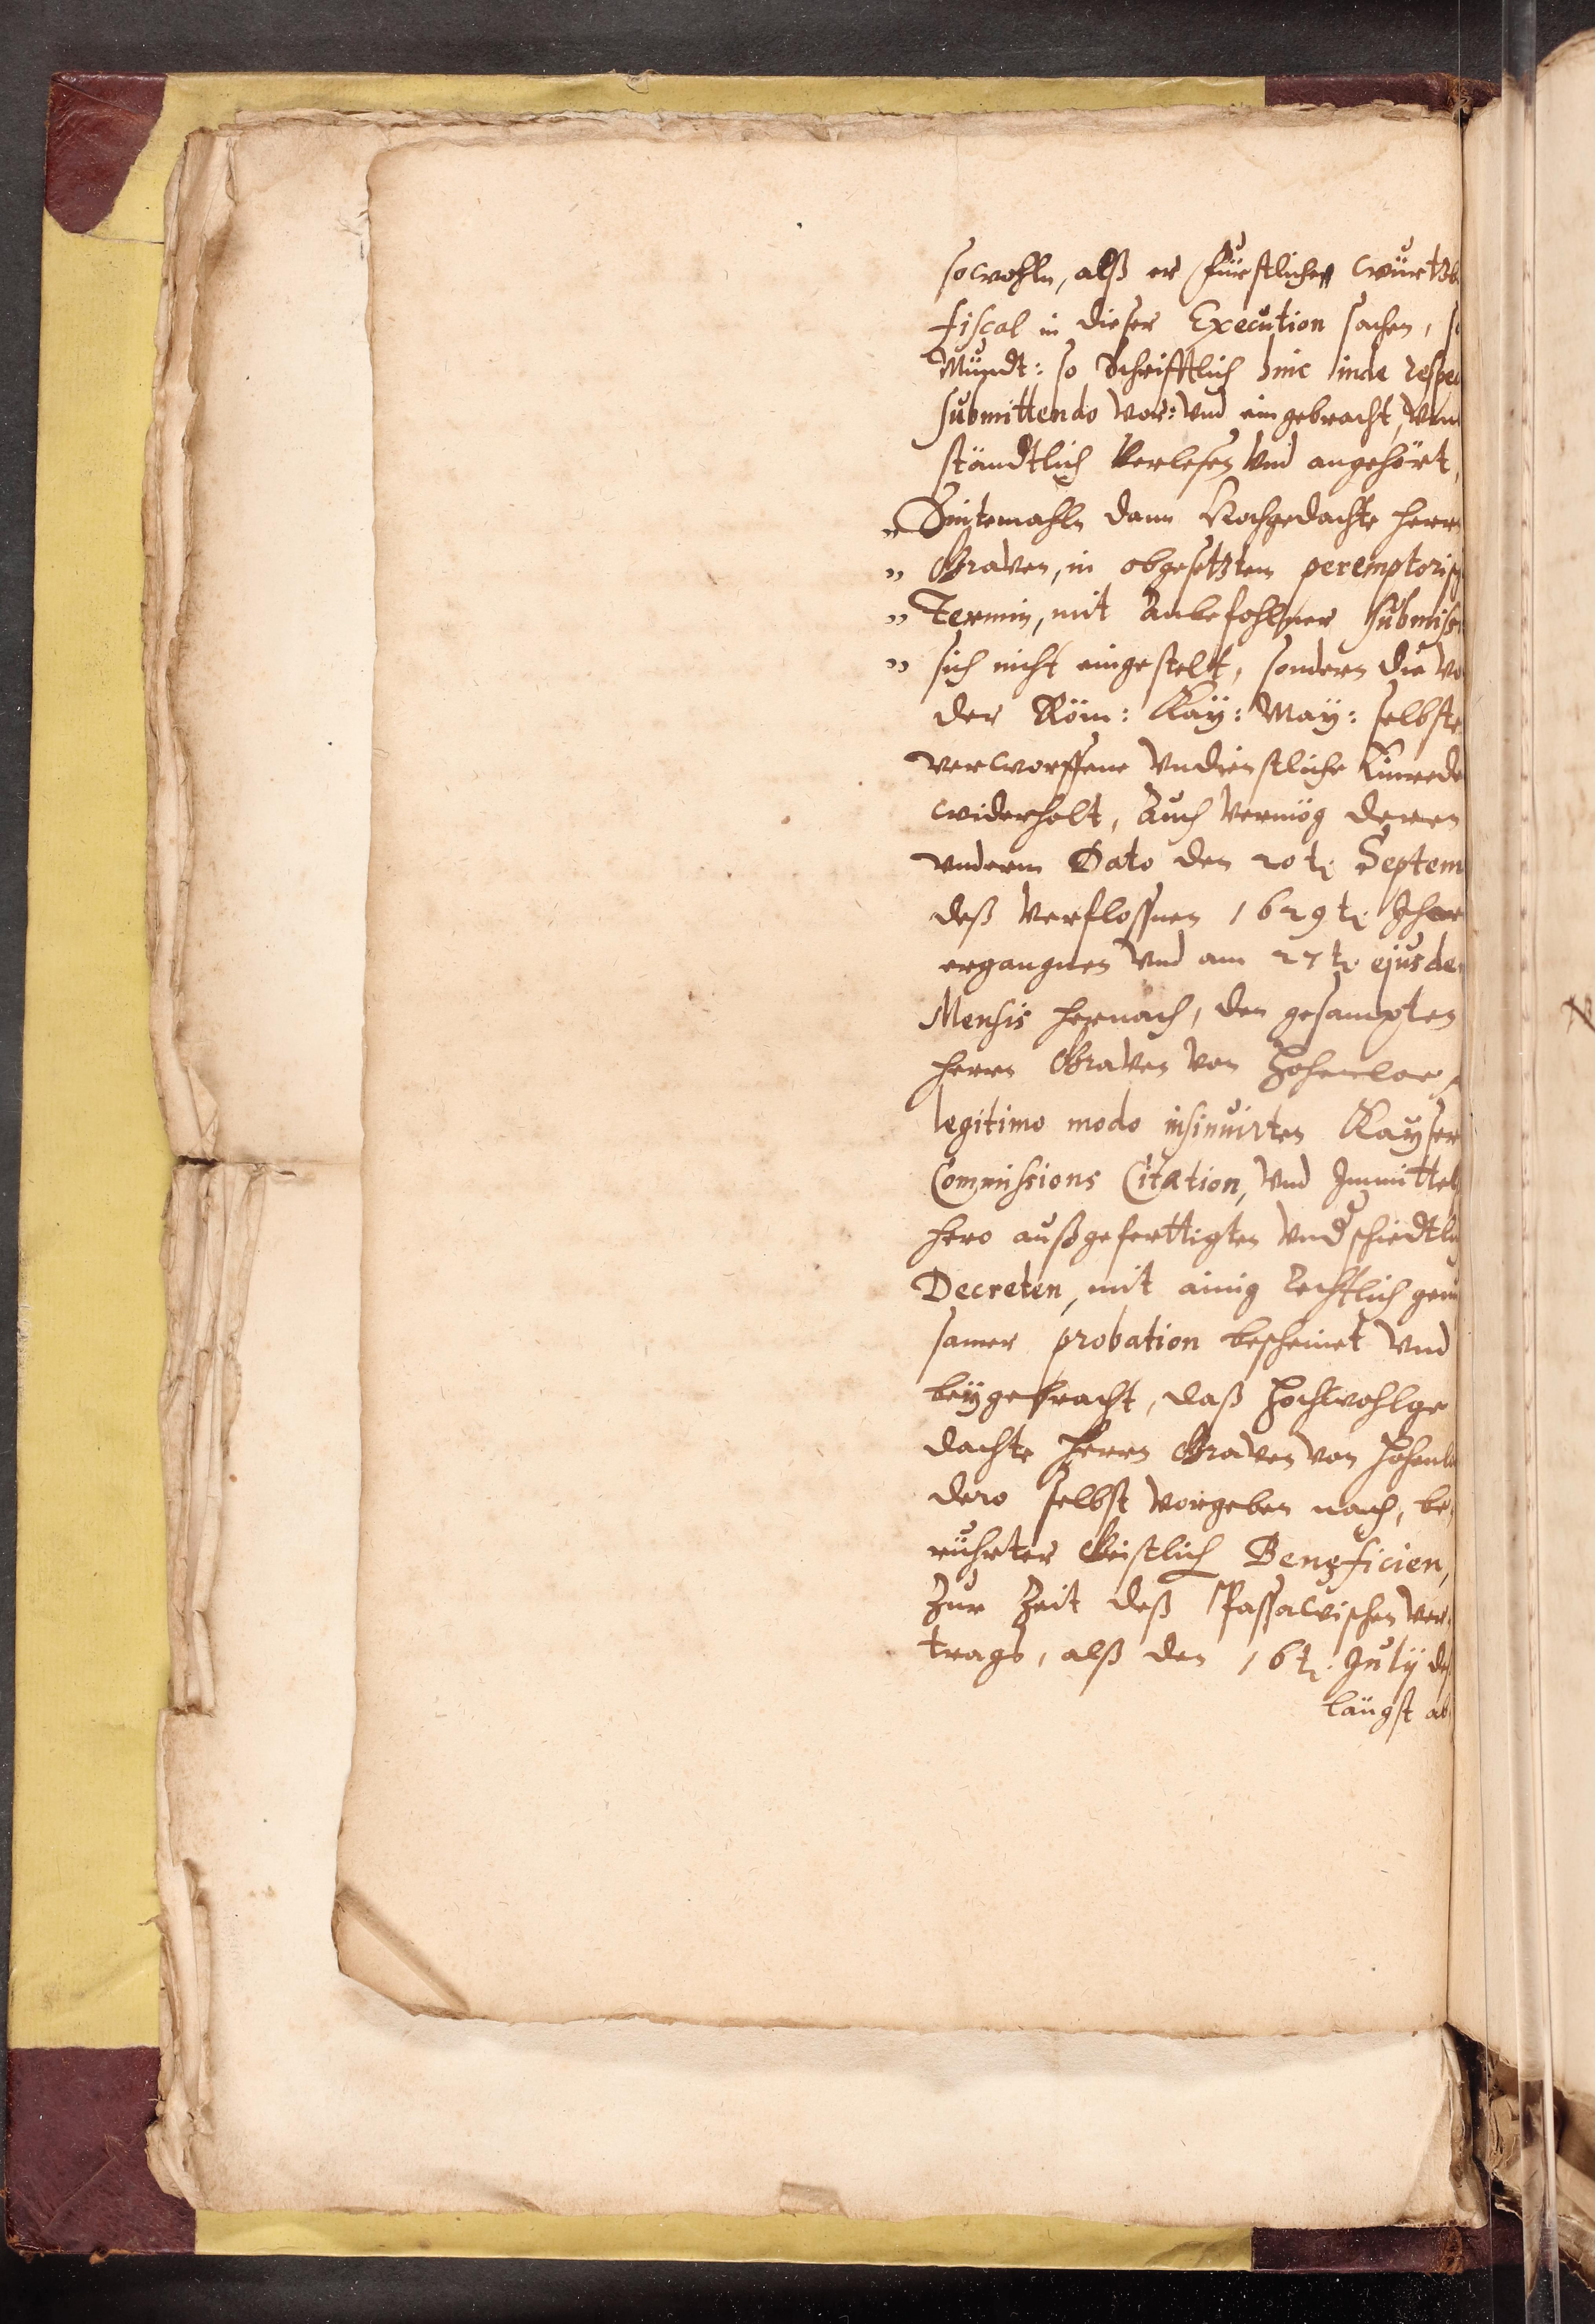 sowohln, alß er fürstliche würtzb
fiscal in dieser Execution sachen, so
Mundt: so Schrifftlich hinc inde respec
submittendo vor: vnd eingebracht, vm
ständtlich verlesen vnd angehört,
„ Sintemahln dann Hochgedachte herrn
„ Graven, in obgesetztem peremptorisch
„ Termin, mit anbefohlener submissi
„ sich nicht eingestelt, sondern die vo
der Röm: Kaÿ: Maÿ: selbste
verworffene vndienstliche Einrede
widerholt, auch vermög deren
vnderm Dato den 20 t. Septem
deß verflossnen 1629 t. Jahr
ergangnen vnd am 27 t. ejusde
Mensis hernach, den gesampten
herrn Graven von Hohenloe,
legitimo modo insinuirten Kayser
Commissions Citation, vnd Immittel
hero außgeferttigten vndschiedtli
Decreten, mit ainig rechtlich gnu
samer probation bescheinet vnd
beÿgebracht, daß Hochwohlge
dachte Herrn Graven von Hohenlo
dero selbst vorgeben nach, be,
rührter Geistlich Beneficien,
Zur Zeit deß Passawischen ver,
trags, alß den 16 t. Julÿ deß
längst ab